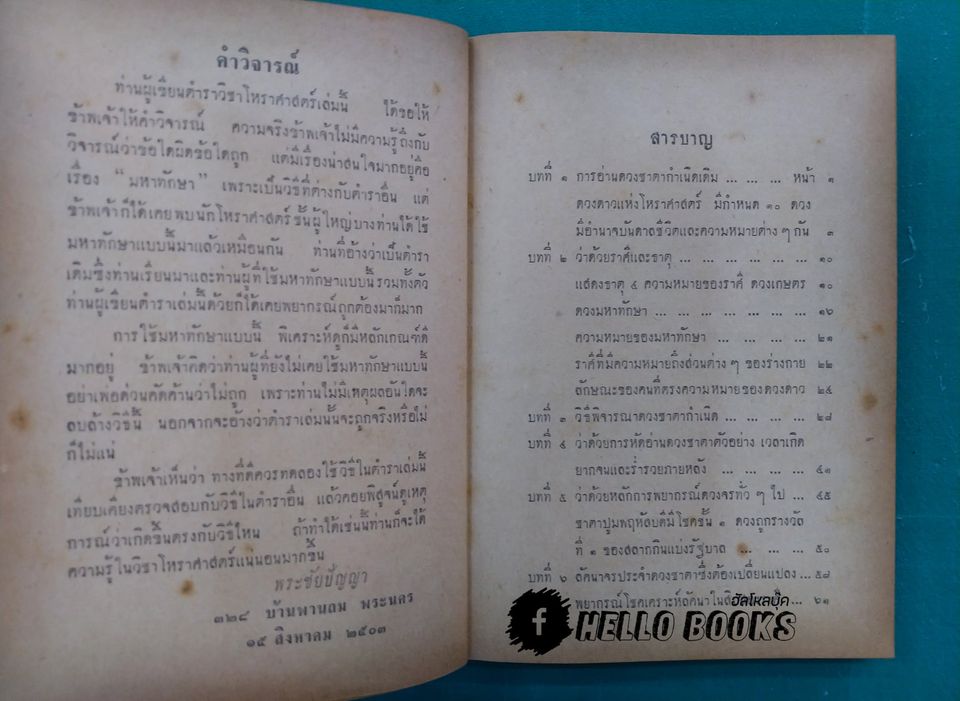 คำวิจารณ์
ท่านผู้เขียนตำราวิชาโหราศาสตร์เล่มนี้ ได้ขอให้
ข้าพเจ้าให้คำวิจารณ์ ความจริงข้าพเจ้าไม่มีความรู้ถึงกับ
วิจารณ์ว่าข้อใดผิดข้อใดถูก แต่มีเรื่องน่าสนใจมากอยู่คือ
เรื่อง "มหาทักษา" เพราะเป็นวิธีที่ต่างกับตำราอื่น แต่
ข้าพเจ้าก็ได้เคยพบนักโหราศาสตร์ชั้นผู้ใหญ่บางท่านได้ใช้
มหาทักษาแบบนี้มาแล้วเหมือนกัน ท่านที่อ้างว่าเป็นตำรา
เดิมซึ่งท่านเรียนมาและท่านผู้ที่ใช้มหาทักษาแบบนี้ รวมทั้งตัว
ท่านผู้เขียนตำราเล่มนี้ด้วยก็ได้เคยพยากรณ์ถูกต้องมาก็มาก
การใช้มหาทักษาแบบนี้ พิเคราะห์ดูก็มีหลักเกณฑ์ดี
มากอยู่ ข้าพเจ้าคิดว่าท่านผู้ที่ยังไม่เคยใช้มหาทักษาแบบนี้
อย่าเพ่อด่วนคัดค้านว่าไม่ถูก เพราะท่านไม่มีเหตุผลอันใดจะ
ลบล้างวิธีนี้ นอกจากจะอ้างว่าตำราเล่มนั้นจะถูกจริงหรือไม่
ก็ไม่แน่
ข้าพเจ้าเห็นว่า ทางที่ดีควรทดลองใช้วิธีในตำราเล่มนี้
เทียบเคียงตรวจสอบกับวิธีในตำราอื่น แล้วคอยพิสูจน์ดูเหตุ
การณ์ว่าเกิดขึ้นตรงกับวิธีไหน ถ้าทำได้เช่นนี้ท่านก็จะได้
ความรู้ในวิชาโหราศาสตร์แน่นอนมากขึ้น
พระชัยปัญญา
๓๒๘ บ้านพานถม พระนคร
๑๕ สิงหาคม ๒๕๐๓
สารบาญ
บทที่ ๑ การอ่านดวงชาตากำเนิดเดิม ... ... ... หน้า ๑
ดวงดาวแห่งโหราศาสตร์ มีกำหนด ๑๐ ดวง
มีอำนาจบันดาลชีวิตและความหมายต่าง ๆ กัน ๓
บทที่ ๒ ว่าด้วยราศีและธาตุ ... ... ... ... ... ... ๑๐
แสดงธาตุ ๔ ความหมายของราศี ดวงเกษตร ๑๐
ดวงมหาทักษา ... ... ... ... ... ... ... ๑๖
ความหมายของมหาทักษา ... ... ... ... ๒๑
ราศีที่มีความหมายถึงส่วนต่าง ๆ ของร่างกาย ๒๒
ลักษณะของคนที่ตรงความหมายของดวงดาว ๒๔
บทที่ ๓ วิธีพิจารณาดวงชาตากำเนิด ... ... ... ... ๒๘
บทที่ ๔ ว่าด้วยการหัดอ่านดวงชาตาตัวอย่าง เวลาเกิด
ยากจนและร่ำรวยภายหลัง ... ... ... ... ๔๑
บทที่ ๕ ว่าด้วยหลักการพยากรณ์ดวงจรทั่ว ๆ ไป ... ๔๕
ชาตาปูมพฤหัสบดีมีโชคชั้น ๑ ดวงถูกรางวัล
ที่ ๑ ของสลากกินแบ่งรัฐบาล ... ... ... ๕๐
บทที่ ๖ ลัคนาจรประจำดวงชาตาซึ่งต้องเปลี่ยนแปลง ... ๕๘
พยากรณ์โชคเคราะห์ลัคนาใน ... ๖๑
ฮัลโหลบุ๊ค
f HELLO BOOKS